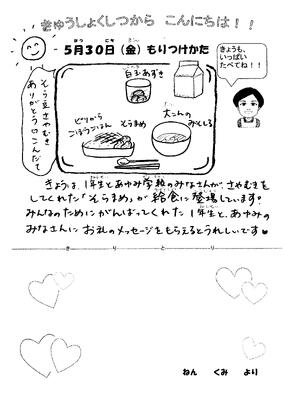 きゅうしょくしつから こんにちは！！
5月30日（金）もりつけかた
きょうも、
いっぱい
たべてね！！
そら豆さやむき
ありがとうこんだて
白玉あずき
ピリから
ごぼうごはん
そらまめ
大こんの
みそしる
きょうは、1年生とあゆみ学校のみなさんが、さやむきを
してくれた「そらまめ」が給食に登場しています！
みんなのためにがんばってくれた1年生と、あゆみの
みなさんに お礼のメッセージをもらえるとうれしいです
きりとり
ねん くみ より